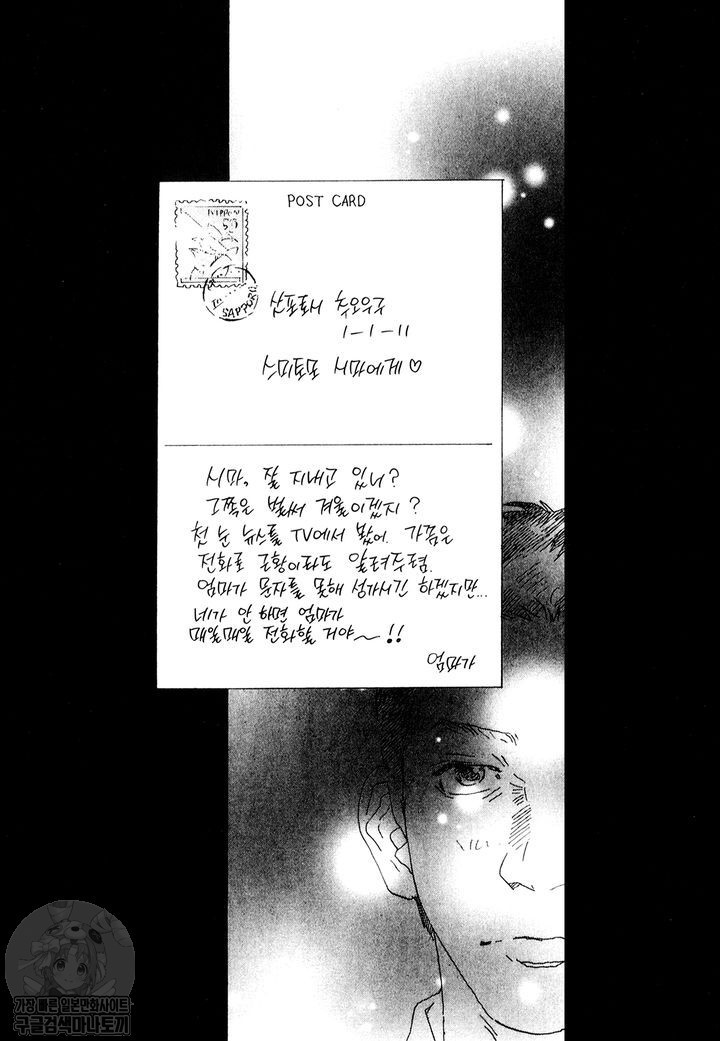 POST CARD
NIPPON
50
SAPPORO
삿포로시 추오우구
1-1-11
스미토모 시마에게♡
시마, 잘 지내고 있니?
그쪽은 벌써 겨울이겠지?
첫 눈 뉴스를 TV에서 봤어. 가끔은
전화로 근황이라도 알려주렴.
엄마가 문자를 못해 성가시긴 하겠지만...
네가 안 하면 엄마가
매일매일 전화할 거야~!!
엄마가
가장 빠른 일본만화사이트
구글검색마나토끼